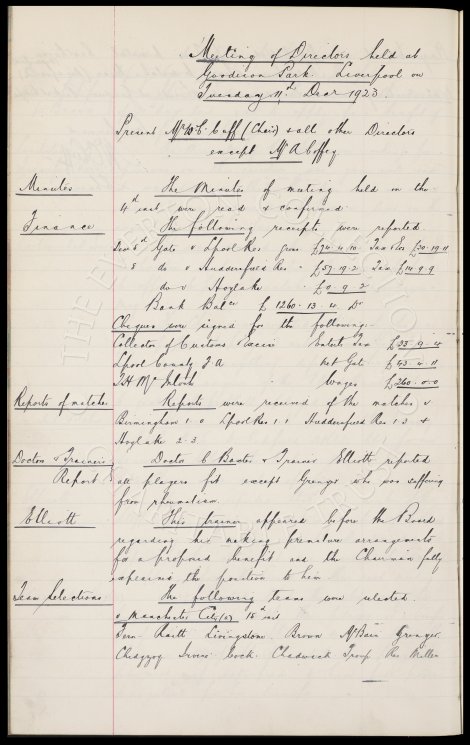 Meeting of Directors held at
Goodison Park Liverpool on
Tuesday 11th Decr 1923
Present Mr W.C. Cuff (Chair) & all other Directors
except Mr A Coffey
Minutes
The Minutes of meeting held on the
4th inst were read & confirmed.
Finance
The following receipts were reported
Gate v Lpool Res gross £74.4.10 Tax
8 do v Huddersfield Res £57.19.2 Tax £14.9.9
do v Hoylake £9.9.2
Bank Balce £1260.13.4 Dr
Cheques were signed for the following:-
Collector of Customs & Excise Entets Tax
Lpool County F A net Gate
Wages £260.0.0
Reports of matches
Reports were received of the matches v
Birmingham 1.0 Lpool Res 1.1 Huddersfield Res 1.3 &
Hoylake 2.3
Doctor & Trainers
Report
Doctor C Baxter & Trainer Elliott reported
all players fit except Grenyer who was suffering
from rheumatism.
Elliott
This trainer appeared before the Board
regarding his making premature arrangements
for a proposed benefit and the Chairman fully
explained the position to him.
Team Selections
The following teams were selected.
v Manchester City (a) 15th inst
Fern Raitt Livingstone Brown McBain Grenyer
Chedgzoy Irvine Cock Chadwick Troup Res Miller
THE EVERTON